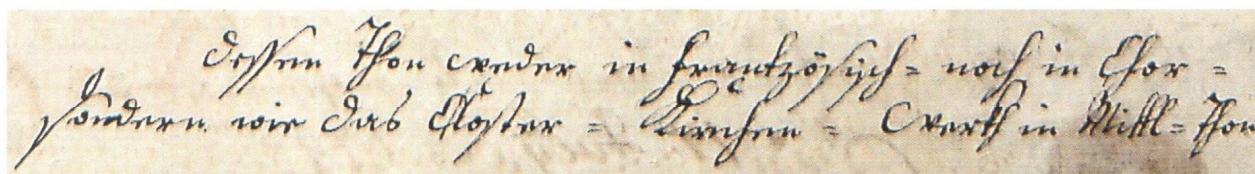 dessen Thon weder in frantzösisch= noch in Chor=
sondern wie das Closter = Kirchen = Werkh in Mittl=Thon